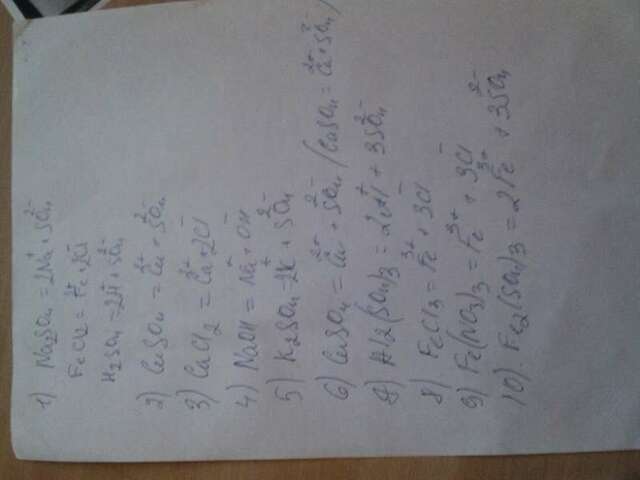 1) Na₂SO₄ = 2Na⁺ + SO₄²⁻
FeCl₂ = Fe²⁺ + 2Cl⁻
H₂SO₄ = 2H⁺ + SO₄²⁻
2) CuSO₄ = Cu²⁺ + SO₄²⁻
3) CaCl₂ = Ca²⁺ + 2Cl⁻
4) NaOH = Na⁺ + OH⁻
5) K₂SO₄ = 2K⁺ + SO₄²⁻
6) CuSO₄ = Cu²⁺ + SO₄²⁻ (CaSO₄ = Ca²⁺ + SO₄²⁻)
7) Al₂(SO₄)₃ = 2Al⁺ + 3SO₄²⁻
8) FeCl₃ = Fe³⁺ + 3Cl⁻
9) Fe(NO₃)₃ = Fe³⁺ + 3Cl⁻
10) Fe₂(SO₄)₃ = 2Fe³⁺ + 3SO₄²⁻